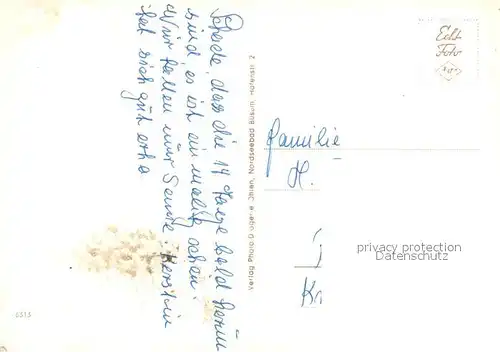 Schade, dass die 14 Tage bald herum
sind, es ist ein malig schön!
Wir hatten nur Sonne. Kerstin
hat sich gut erho
Verlag Photo Nordseebad Büsum, Hafenstr. 2
Echt
Foto
Familie
H.
J
Kr
privacy protection
Datenschutz
6313